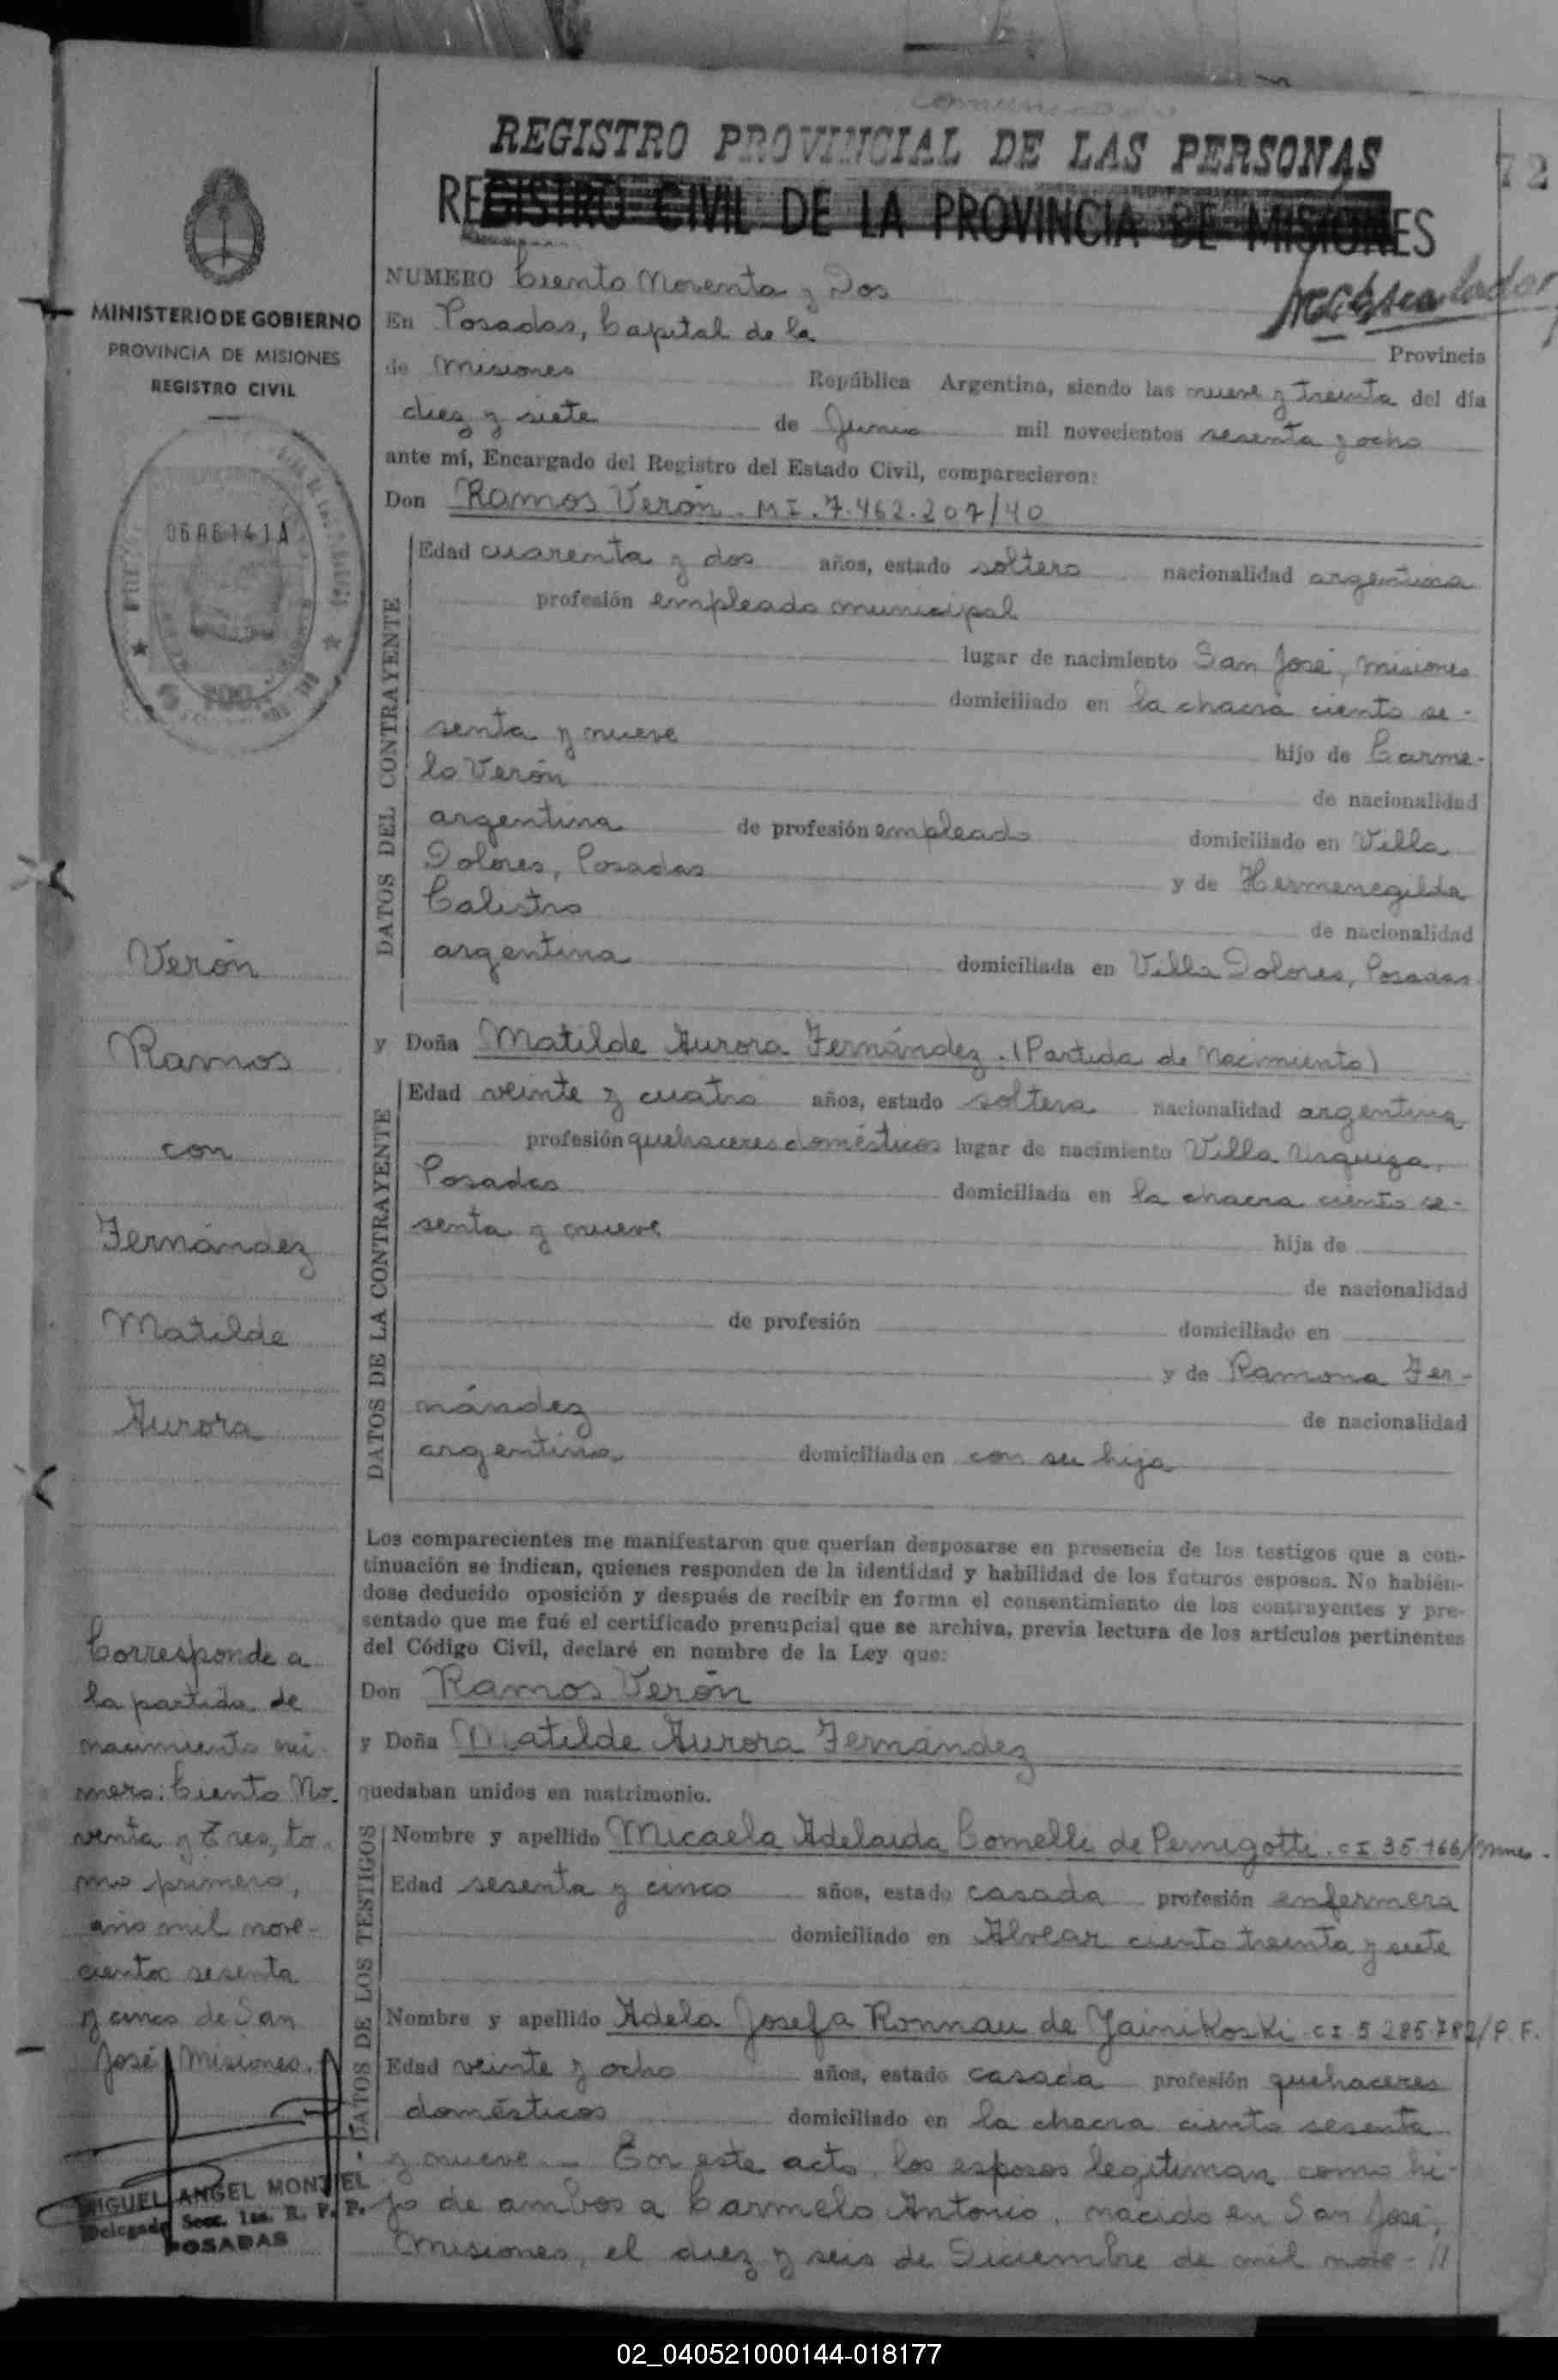 REGISTRO PROVINCIAL DE LAS PERSONAS
72
REGISTRO CIVIL DE LA PROVINCIA DE MISIONES
MINISTERIO DE GOBIERNO
PROVINCIA DE MISIONES
REGISTRO CIVIL
0686141A
NUMERO Ciento Noventa y Dos
En Posadas, Capital de la Provincia
de Misiones República Argentina, siendo las nueve y treinta del día
diez y siete de Junio mil novecientos sesenta y ocho
ante mí, Encargado del Registro del Estado Civil, comparecieron:
Don Ramos Verón. MI. 7.462.207/40
DATOS DEL CONTRAYENTE
Edad cuarenta y dos años, estado soltero nacionalidad argentina
profesión empleado municipal
lugar de nacimiento San José, Misiones
domiciliado en la chacra ciento se-
senta y nueve hijo de Carme-
lo Verón de nacionalidad
argentina de profesión empleado domiciliado en Villa
Dolores, Posadas y de Hermenegilda
Calistro de nacionalidad
argentina domiciliada en Villa Dolores, Posadas
y Doña Matilde Aurora Fernández. (Partida de Nacimiento)
DATOS DE LA CONTRAYENTE
Edad veinte y cuatro años, estado soltera nacionalidad argentina
profesión quehaceres domésticos lugar de nacimiento Villa Urquiza,
Posadas domiciliada en la chacra ciento se-
senta y nueve hija de
de nacionalidad
de profesión domiciliado en
y de Ramona Fer-
nández de nacionalidad
argentina domiciliada en con su hija
Los comparecientes me manifestaron que querían desposarse en presencia de los testigos que a con-
tinuación se indican, quienes responden de la identidad y habilidad de los futuros esposos. No habién-
dose deducido oposición y después de recibir en forma el consentimiento de los contrayentes y pre-
sentado que me fué el certificado prenupcial que se archiva, previa lectura de los artículos pertinentes
del Código Civil, declaré en nombre de la Ley que:
Don Ramos Verón
y Doña Matilde Aurora Fernández
quedaban unidos en matrimonio.
DATOS DE LOS TESTIGOS
Nombre y apellido Micaela Adelaida Comelli de Pernigotti. CI 35.166/Mnes.
Edad sesenta y cinco años, estado casada profesión enfermera
domiciliado en Alvear ciento treinta y siete
Nombre y apellido Adela Josefa Ronnau de Jainikoski CI 5 285 782/P. F.
Edad veinte y ocho años, estado casada profesión quehaceres
domésticos domiciliado en la chacra ciento sesenta
y nueve. En este acto, los esposos legitiman como hi-
jo de ambos a Carmelo Antonio, nacido en San José,
Misiones, el diez y seis de Diciembre de mil nove- //
Verón
Ramos
con
Fernández
Matilde
Aurora
Corresponde a
la partida de
nacimiento nú-
mero: Ciento No-
venta y Tres, to-
mo primero,
año mil nove-
cientos sesenta
y cinco de San
José, Misiones.
MIGUEL ANGEL MONTIEL
Delegado Secc. 1ra. R. P. P.
POSADAS
02_040521000144-018177